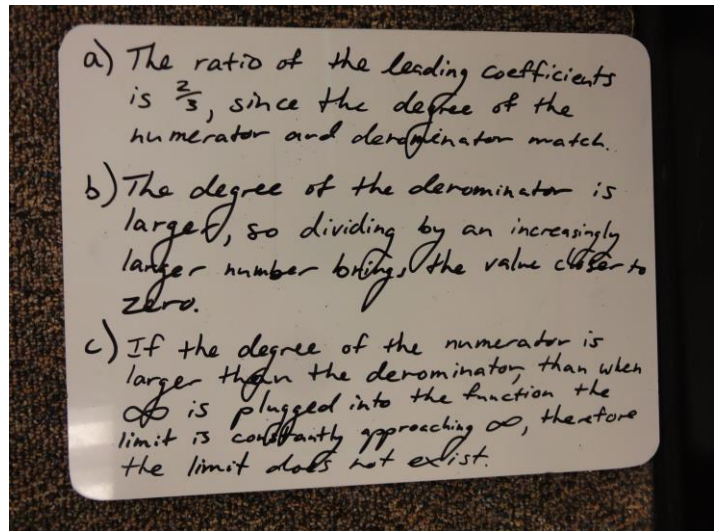 a) The ratio of the leading coefficients
is 2/3, since the degree of the
numerator and denominator match.
b) The degree of the denominator is
larger, so dividing by an increasingly
larger number brings the value closer to
zero.
c) If the degree of the numerator is
larger than the denominator, than when
∞ is plugged into the function the
limit is constantly approaching ∞, therefore
the limit does not exist.